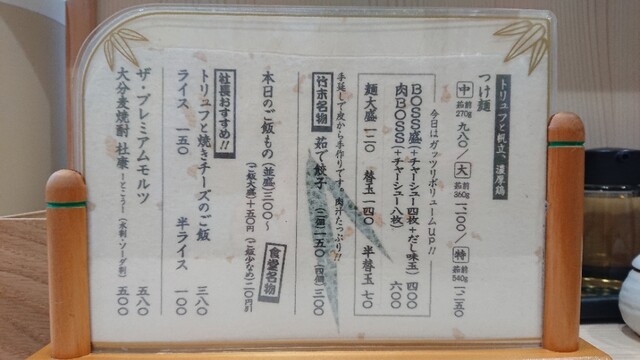 トリュフと帆立、濃厚鶏
つけ麺
中 茹前270g 九八〇／大 茹前360g 一一〇〇／特 茹前540g 一二五〇
今日はガッツリボリュームup!!
BOSS盛(+チャーシュー四枚+だし味玉) 四〇〇
肉BOSS(+チャーシュー八枚) 六〇〇
麺大盛 一二〇 替玉 一四〇 半替玉 七〇
手延しで皮から手作りです。肉汁たっぷり!!
竹末名物 茹で餃子 (二個)一五〇 (四個)三〇〇
食堂名物
本日のご飯もの (並盛)三〇〇〜
(ご飯大盛)+五〇円 (ご飯少なめ)
社長おすすめ!!
トリュフと焼きチーズのご飯 三八〇
ライス 一五〇 半ライス 一〇〇
ザ・プレミアムモルツ 五八〇
大分麦焼酎 杜康 ーとこうー (水割・ソーダ割) 五〇〇